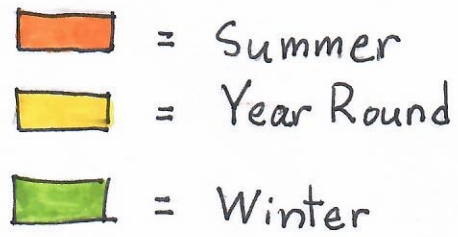 = Summer
= Year Round
= Winter